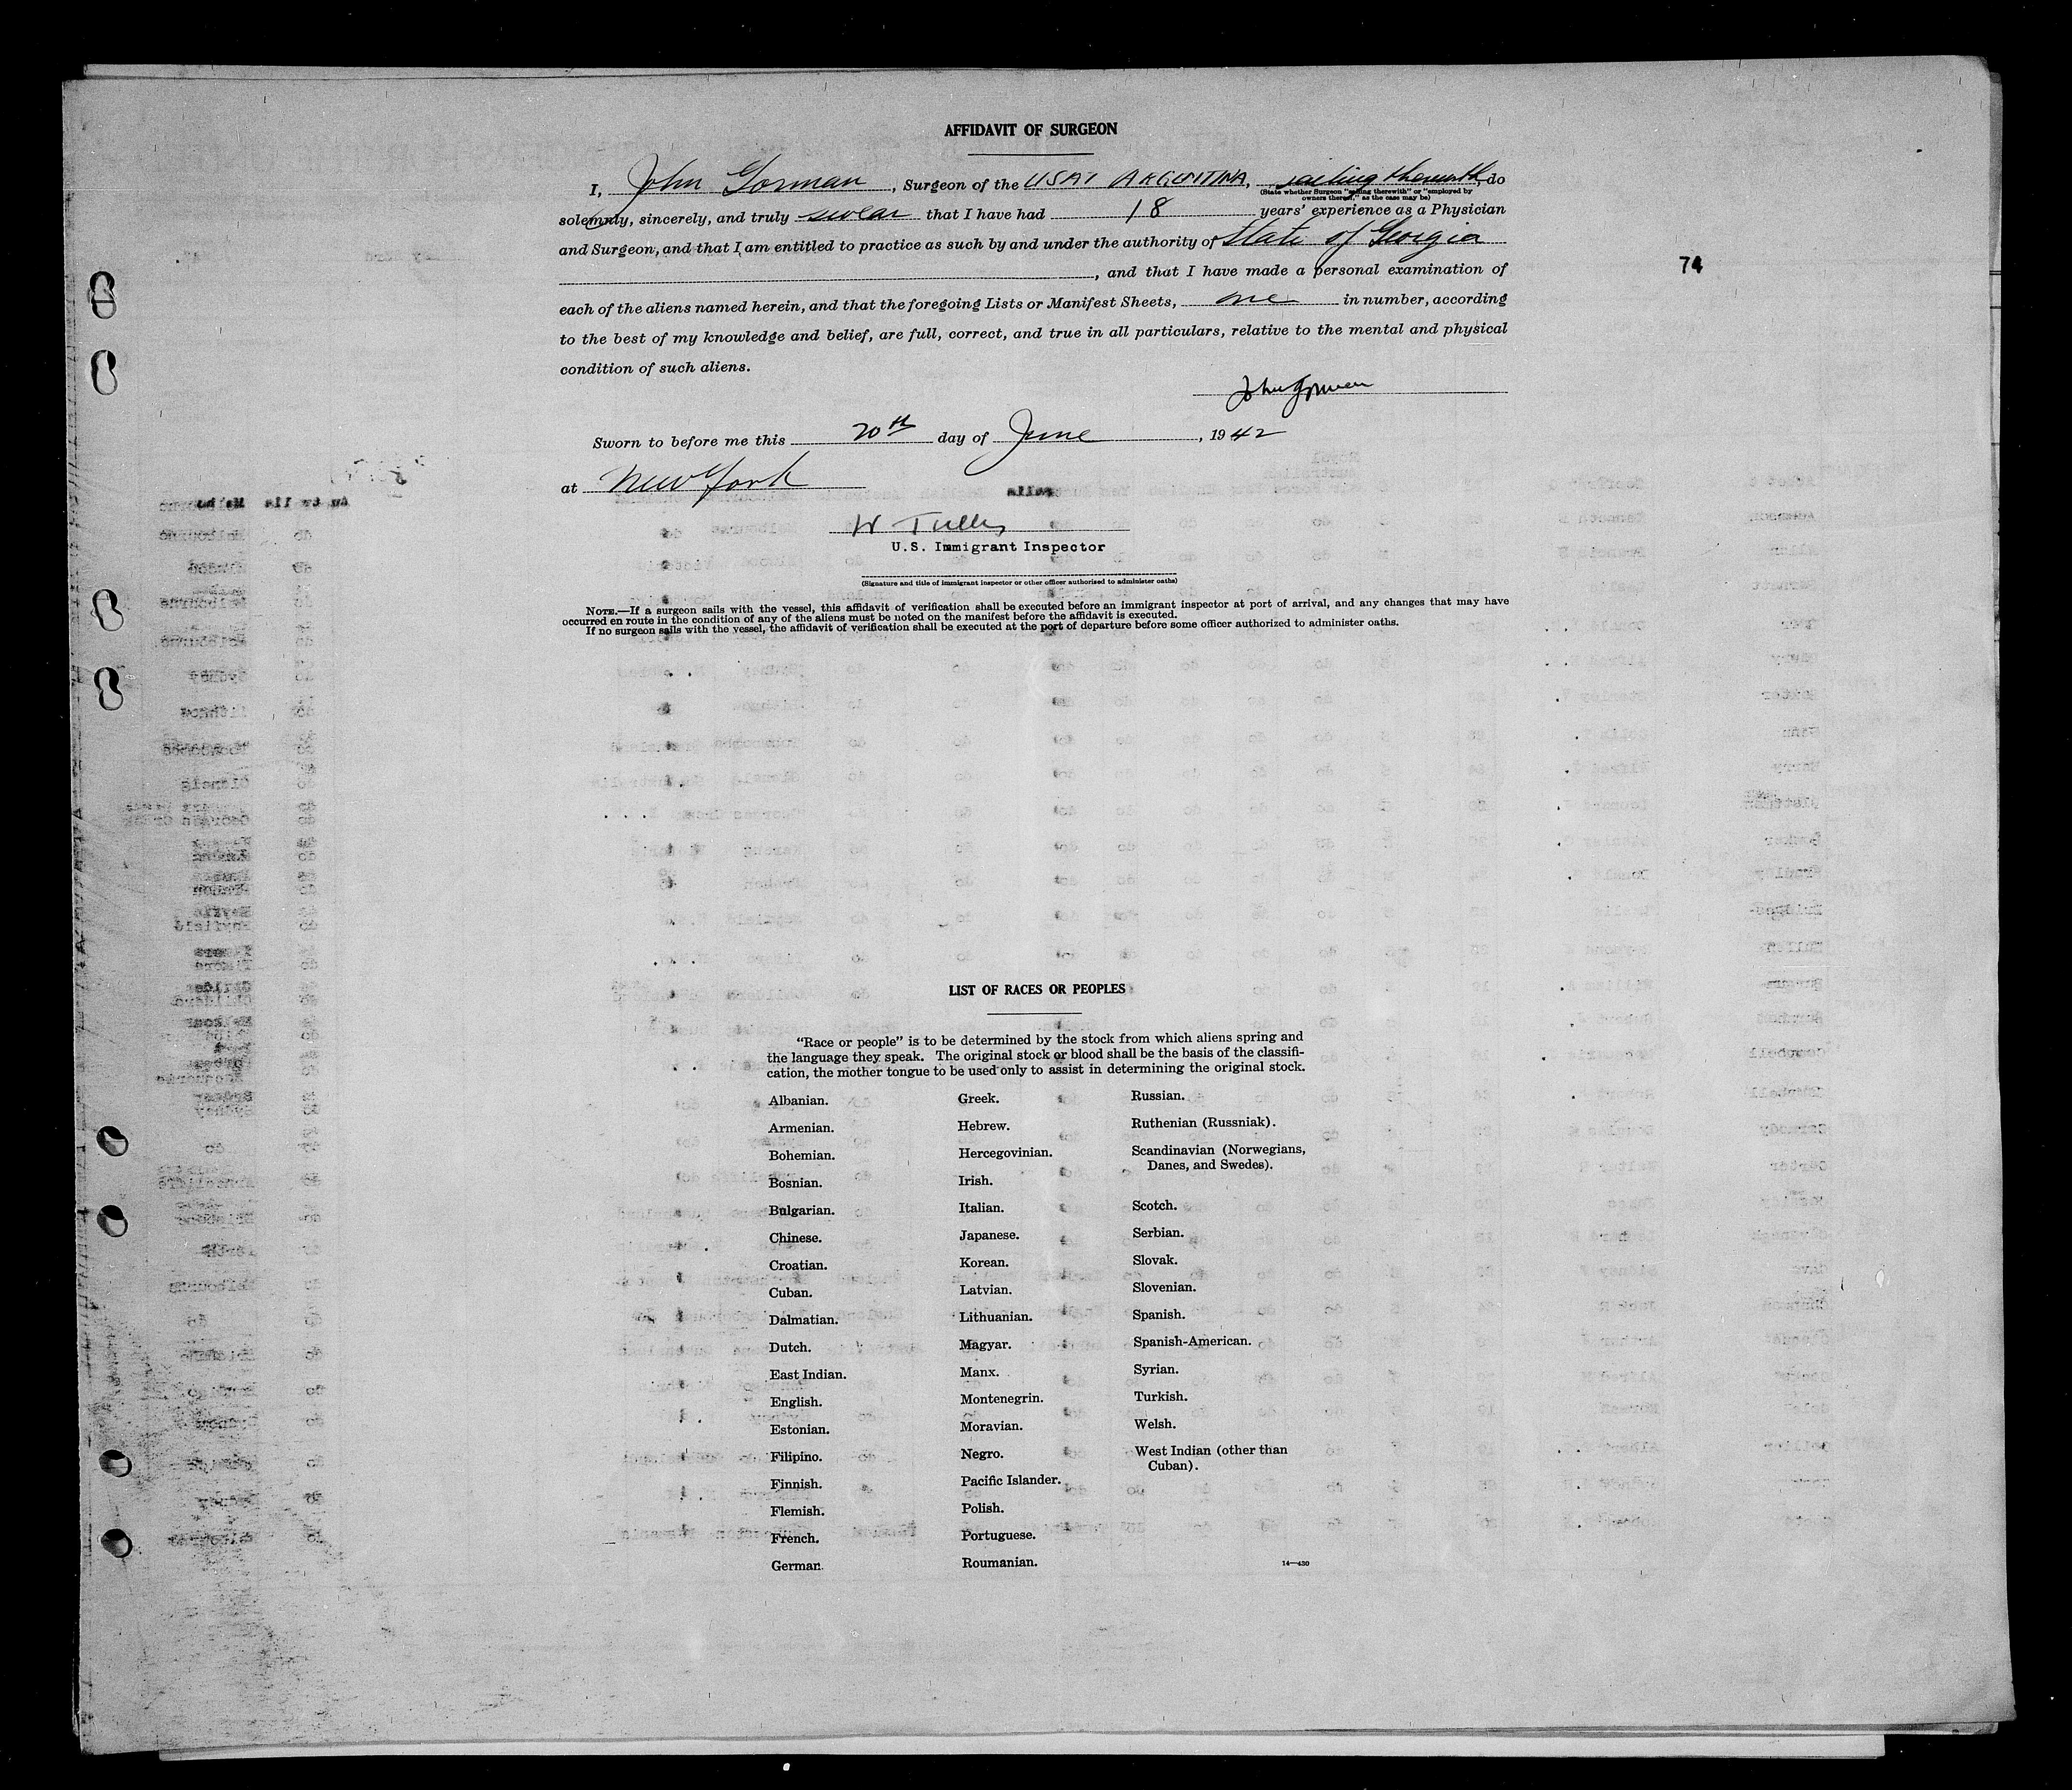 AFFIDAVIT OF SURGEON
I, John Gorman, Surgeon of the USAT ARGENTINA, sailing therewith, do
(State whether Surgeon "sailing therewith" or "employed by
owners thereof," as the case may be)
solemnly, sincerely, and truly swear that I have had 18 years' experience as a Physician
and Surgeon, and that I am entitled to practice as such by and under the authority of State of Georgia
, and that I have made a personal examination of
74
each of the aliens named herein, and that the foregoing Lists or Manifest Sheets, one in number, according
to the best of my knowledge and belief, are full, correct, and true in all particulars, relative to the mental and physical
condition of such aliens.
John Gorman
Sworn to before me this 20th day of June, 1942
at New York
W Tulley
U.S. Immigrant Inspector
(Signature and title of immigrant inspector or other officer authorized to administer oaths)
NOTE.—If a surgeon sails with the vessel, this affidavit of verification shall be executed before an immigrant inspector at port of arrival, and any changes that may have
occurred en route in the condition of any of the aliens must be noted on the manifest before the affidavit is executed.
If no surgeon sails with the vessel, the affidavit of verification shall be executed at the port of departure before some officer authorized to administer oaths.
LIST OF RACES OR PEOPLES
"Race or people" is to be determined by the stock from which aliens spring and
the language they speak. The original stock or blood shall be the basis of the classifi-
cation, the mother tongue to be used only to assist in determining the original stock.
Albanian.
Armenian.
Bohemian.
Bosnian.
Bulgarian.
Chinese.
Croatian.
Cuban.
Dalmatian.
Dutch.
East Indian.
English.
Estonian.
Filipino.
Finnish.
Flemish.
French.
German.
Greek.
Hebrew.
Hercegovinian.
Irish.
Italian.
Japanese.
Korean.
Latvian.
Lithuanian.
Magyar.
Manx.
Montenegrin.
Moravian.
Negro.
Pacific Islander.
Polish.
Portuguese.
Roumanian.
Russian.
Ruthenian (Russniak).
Scandinavian (Norwegians,
Danes, and Swedes).
Scotch.
Serbian.
Slovak.
Slovenian.
Spanish.
Spanish-American.
Syrian.
Turkish.
Welsh.
West Indian (other than
Cuban).
14—430